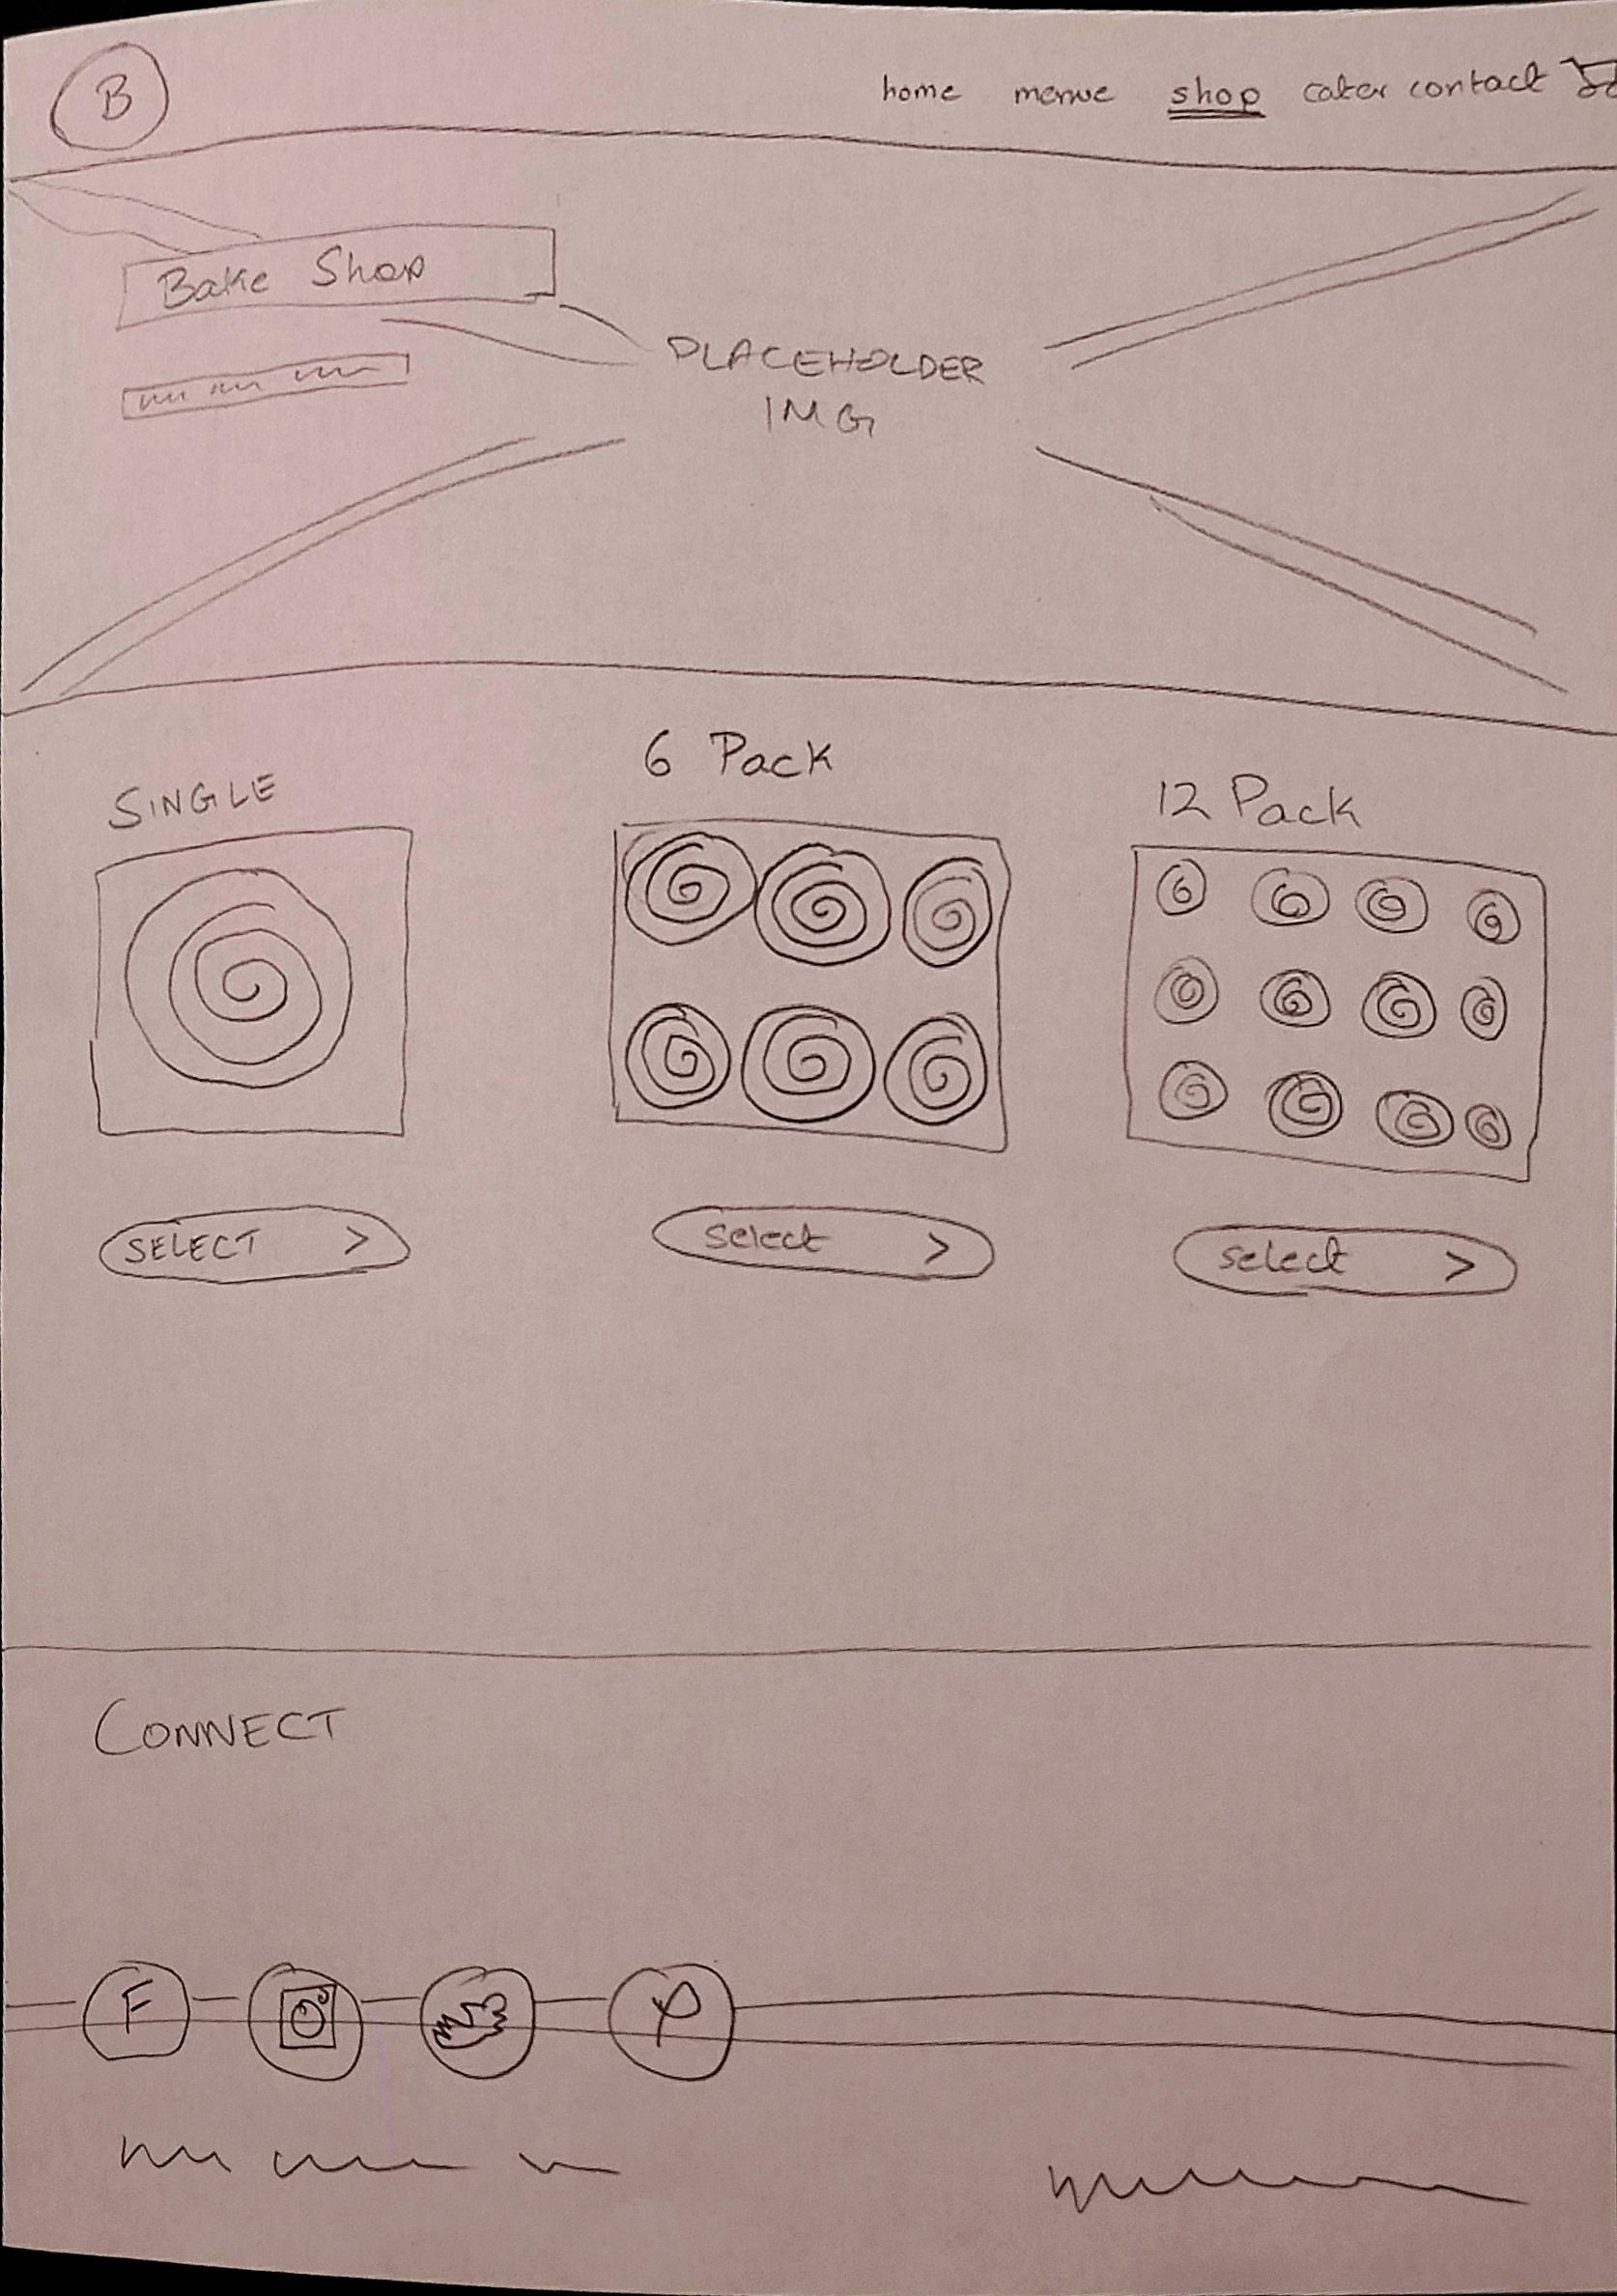 B
home menue shop cater contact
Bake Shop
PLACEHOLDER
IMG
SINGLE
6 Pack
12 Pack
SELECT >
select >
select >
CONNECT
F
P